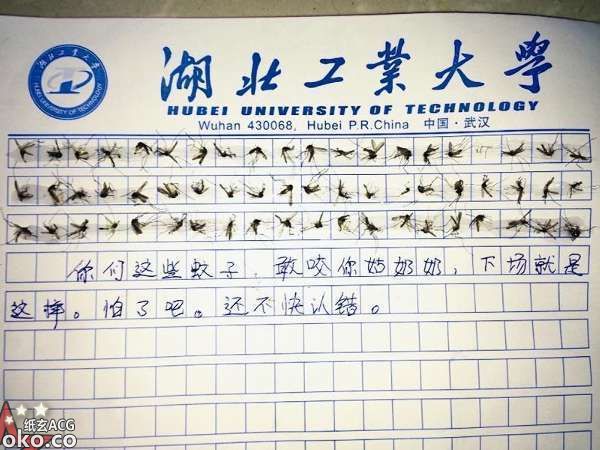 湖北工业大学
湖北工業大學
HUBEI UNIVERSITY OF TECHNOLOGY
HUBEI UNIVERSITY OF TECHNOLOGY
Wuhan 430068, Hubei P.R.China 中国·武汉
你们这些蚊子，敢咬你姑奶奶，下场就是
这样。怕了吧。还不快认错。
纸玄ACG
oko.co